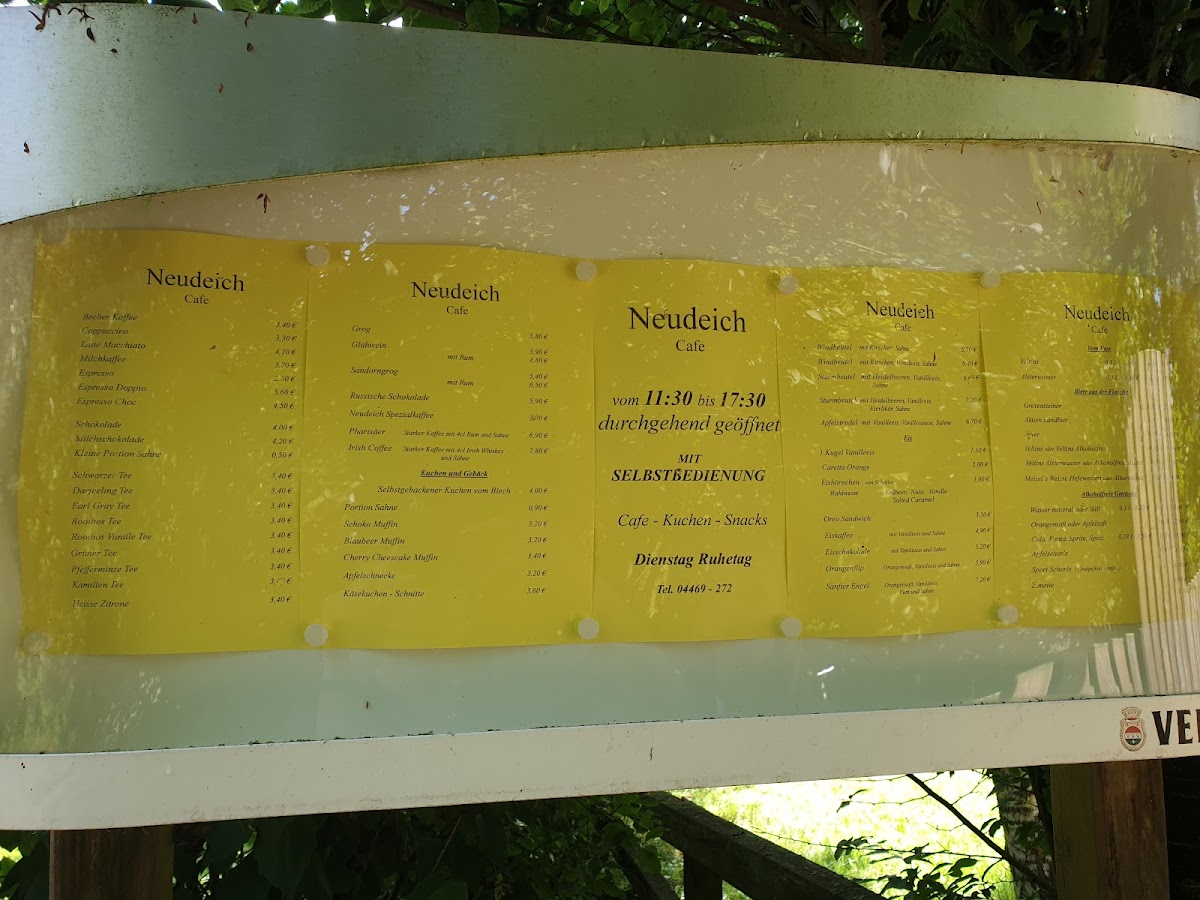 Neudeich
Cafe
Becher Kaffee 3,40 €
Cappuccino 3,30 €
Latte Macchiato 4,10 €
Milchkaffee 3,70 €
Espresso 2,30 €
Espresso Doppio 3,60 €
Espresso Choc 4,50 €
Schokolade 4,00 €
Milchschokolade 4,20 €
Kleine Portion Sahne 0,50 €
Schwarzer Tee 3,40 €
Darjeeling Tee 3,40 €
Earl Gray Tee 3,40 €
Rooibos Tee 3,40 €
Rooibos Vanille Tee 3,40 €
Grüner Tee 3,40 €
Pfefferminze Tee 3,40 €
Kamillen Tee
Heisse Zitrone 3,40 €
Neudeich
Cafe
Grog 3,80 €
Glühwein 3,90 €
mit Rum 4,80 €
Sandorngrog 5,40 €
mit Rum 6,50 €
Russische Schokolade 5,90 €
Neudeich Spezialkaffee
Pharisäer Starker Kaffee mit 4cl Rum und Sahne 6,90 €
Irish Coffee Starker Kaffee mit 4cl Irish Whiskey 7,80 €
und Sahne
Kuchen und Gebäck
Selbstgebackener Kuchen vom Blech 4,00 €
Portion Sahne 0,90 €
Schoko Muffin 3,20 €
Blaubeer Muffin 3,20 €
Cherry Cheescake Muffin 3,40 €
Apfelschnecke 3,20 €
Käsekuchen - Schnitte 3,60 €
Neudeich
Cafe
vom 11:30 bis 17:30
durchgehend geöffnet
MIT
SELBSTBEDIENUNG
Cafe - Kuchen - Snacks
Dienstag Ruhetag
Tel. 04469 - 272
Neudeich
Cafe
Windbeutel mit Kirschen, Sahne 5,70 €
Windbeutel mit Kirschen, Vanilleeis Sahne 6,40 €
Sturmbeutel mit Heidelbeeren, Vanilleeis,
Sahne
Sturmbeutel mit Heidelbeeren, Vanilleeis, 7,20 €
Eierlikör, Sahne
Apfelstrudel mit Vanilleeis, Vanillesauce, Sahne 6,70 €
Eis
1 Kugel Vanilleeis 1,50 €
Caretta Orange 2,00 €
Eishörnchen von Schöller
Wahlweise Erdbeer, Nuss, Vanille
Salted Caramel
Oreo Sandwich 3,50 €
Eiskaffee mit Vanilleeis und Sahne 4,90 €
Eisschokolade mit Vanilleeis und Sahne 5,20 €
Orangenflip Orangensaft, Vanilleeis und Sahne 5,90 €
Sanfter Engel Orangensaft, Vanilleeis, 7,20 €
Rum und Sahne
Neudeich
Cafe
Vom Fass
Veltins
Alsterwasser
Biere aus der Flasche
Grevensteiner
Aktien Landbier
Jever
Veltins oder Veltins Alkoholfrei
Veltins Alsterwasser oder Alkoholfrei
Meisel's Weisse Hefeweizen oder
Alkoholfreie Getränke
Wasser mineral oder Still
Orangensaft oder Apfelsaft
Cola, Fanta, Sprite, Spezi
Apfelschorle
VEL